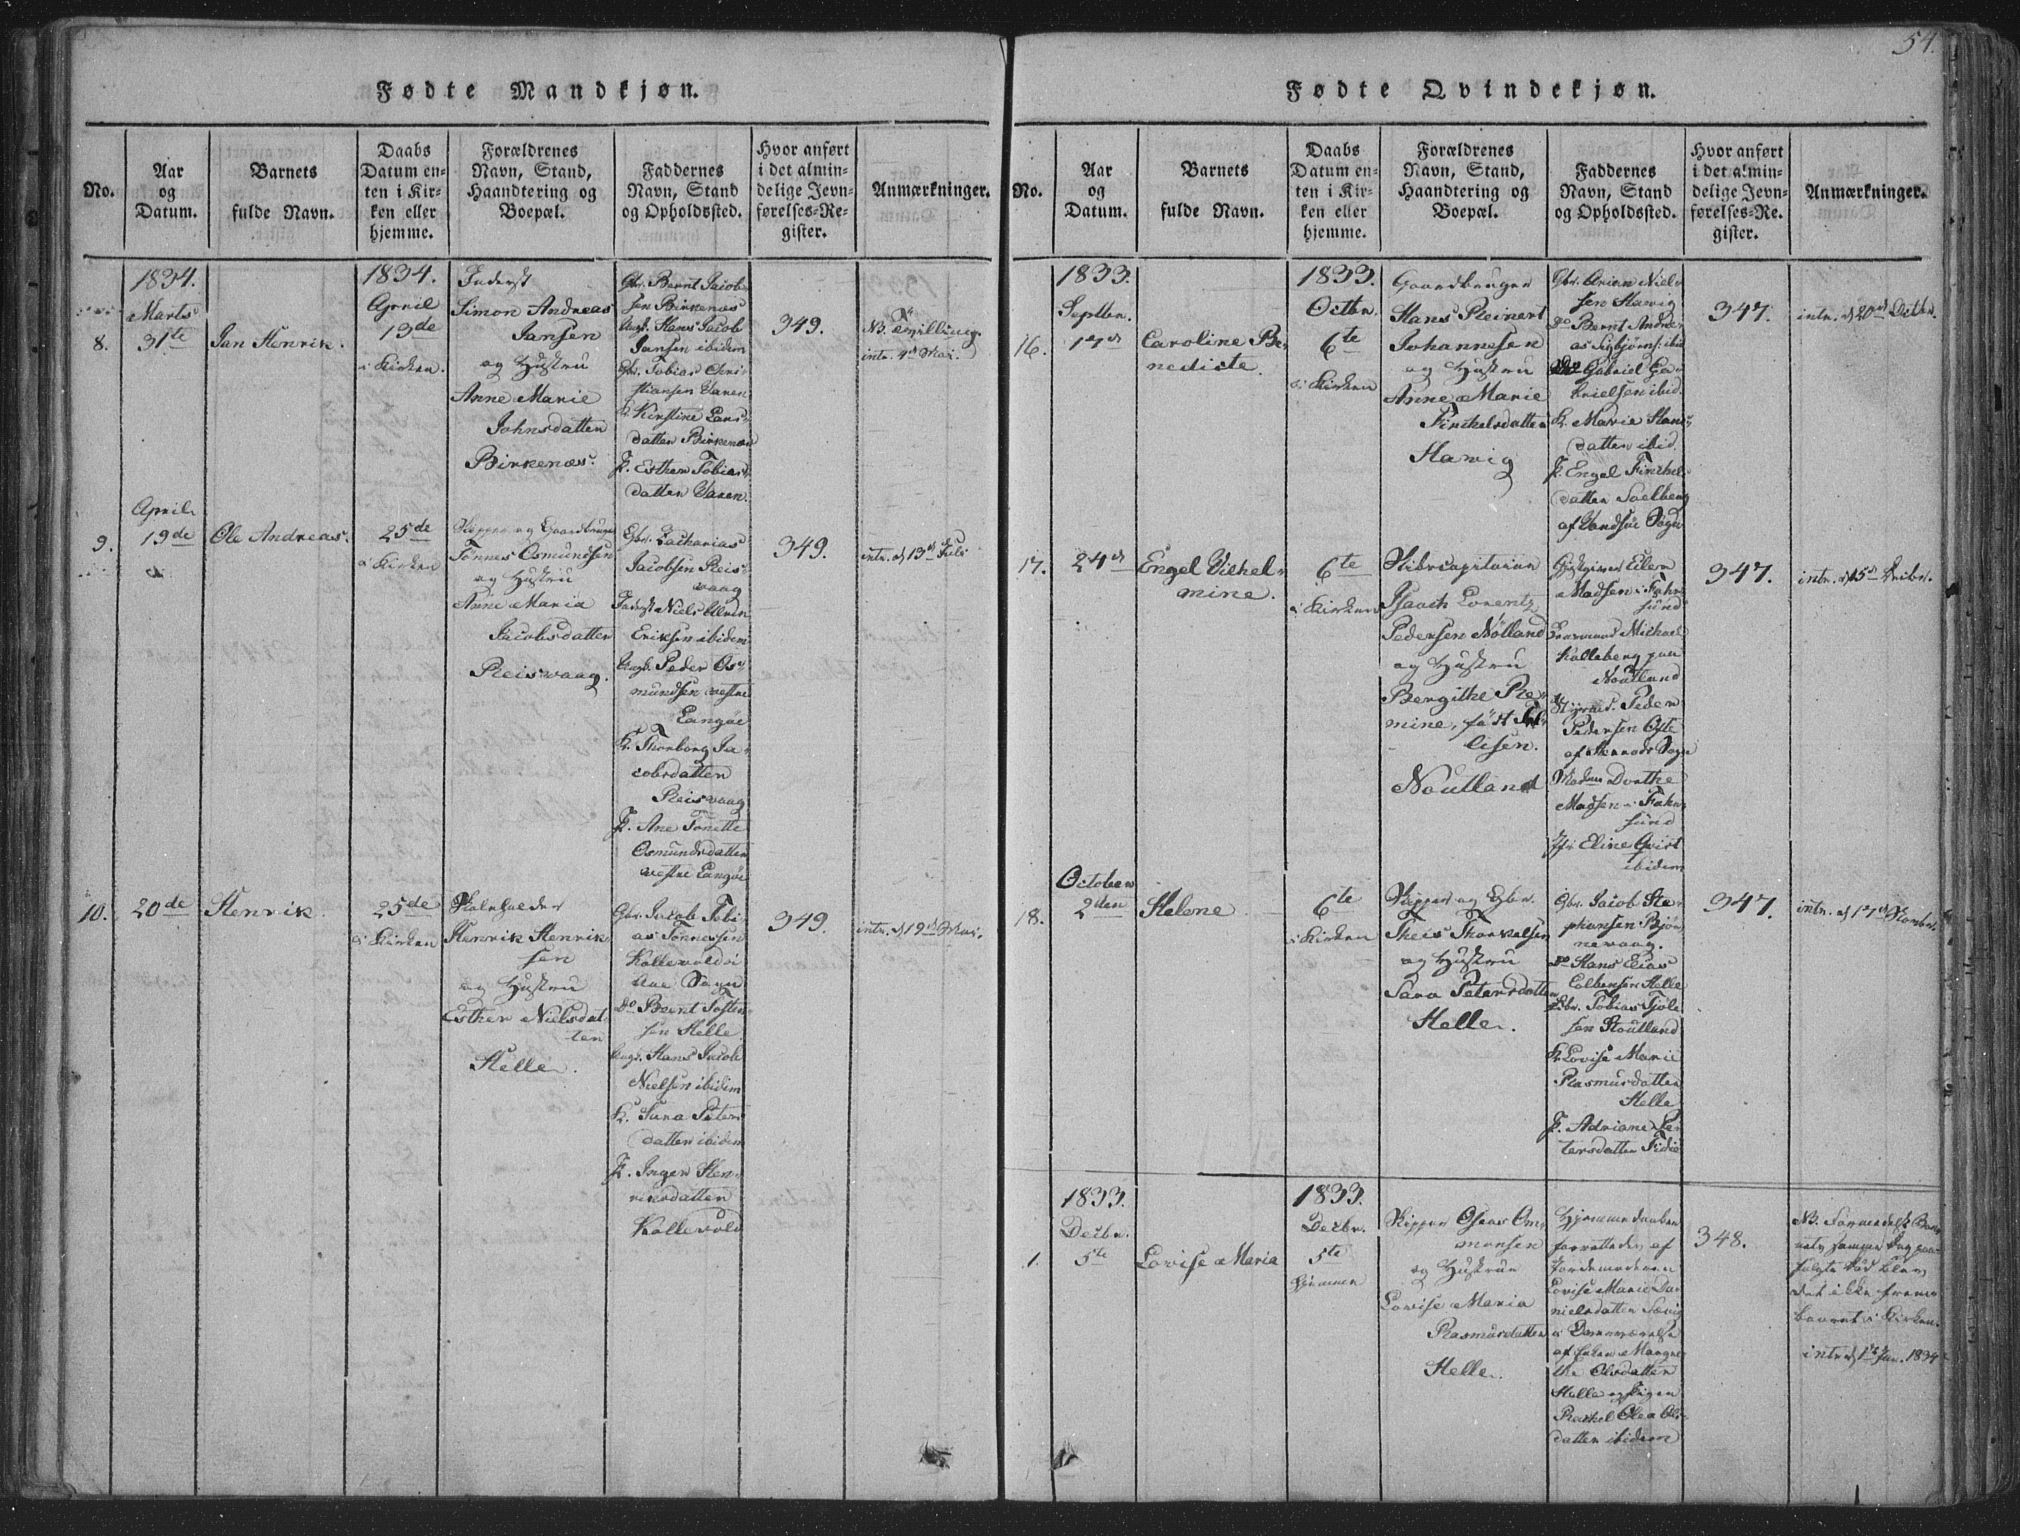 54.
Fødte Mandkjøn.
No.
Aar
og
Datum.
Barnets
fulde Navn.
Daabs
Datum en-
ten i Kir-
ken eller
hjemme.
Forældrenes
Navn, Stand,
Haandtering og
Boepæl.
Faddernes
Navn, Stand
og Opholdssted.
Hvor anført
i det almin-
delige Jevn-
førelses-Re-
gister.
Anmærkninger.
8.
1834.
Marts
31te
Jan Henrik.
1834.
April
13de
i Kirken.
Inderst
Simon Andreas
Jansen
og Hustru
Anne Marie
Johnsdatter
Birkenæs.
Gbr. Bernt Jacob-
sen Birkenæs
Ungk. Hans Jacob
Jansen ibidem
Gbr. Tobias Chri-
stiansen
K. Kirstine Lars-
datter Birkenæs
P. Esther Tobias-
datter
349.
NB. Tvilling.
intr. 4de Mai.
9.
April
19de
Ole Andreas.
25de
i Kirken
Skipper og Gaardbruger
Tønnes Osmundsen
og Hustru
Anne Maria
Jacobsdatter
Reisvaag.
Gbr. Zacharias
Jacobsen Reis-
vaag
Inderst Niels
Eriksen ibidem
Ungk. Peder Os-
mundsen vestre
Langøe
K. Thorborg Ja-
cobsdatter
Reisvaag
P. Ane Tonette
Osmundsdatter
vestre Langøe
349.
intr. d. 13de Juli
10.
20de
Henrik.
25de
i Kirken
Henrik Henrik-
sen
og Hustru
Esther Nielsdat-
ter
Helle.
Gbr. Jacob Tobi-
as Tønnessen
Kollevold i
Sogn
Do Bernt
sen Helle
Ungk. Hans Jacob
Nielsen ibidem
K. Sara Peters-
datter ibidem
P. Inger Hen-
riksdatter
Kollevold
349.
intr. d. 19de Mai.
Fødte Qvindekjøn.
No.
Aar
og
Datum.
Barnets
fulde Navn.
Daabs
Datum en-
ten i Kir-
ken eller
hjemme.
Forældrenes
Navn, Stand,
Haandtering og
Boepæl.
Faddernes
Navn, Stand
og Opholdssted.
Hvor anført
i det almin-
delige Jevn-
førelses-Re-
gister.
Anmærkninger.
16.
1833.
Septbr.
17de
Caroline Be-
nedicte.
1833.
Octbr.
6te
i Kirken
Gaardbruger
Hans Reinert
Johannesen
og Hustru
Anne Marie
Tinchelsdatter
Havig
Gbr. Niel-
sen Havig
Do Bernt Andre-
as ibid
Do Gabriel Ga-
brielsen ibid.
K. Marie Hans-
datter ibid.
P. Engel Tinchel-
datter
af Vandsøe Sogn
347.
intr. d. 20de Octbr.
17.
24de
Engel Vilhel-
mine.
6te
i Kirken
Skibscapitain
Isaach Lorentz
Pedersen
og Hustru
Bergithe Re-
mine, født
Noutland
Gjestgiver Eilert
Madsen i Fahr-
sund
Michael
Kalleberg paa
Noutland
Peder
Pedersen
Sogn
Madme Dorthe
Madsen i Fahr-
sund
Jfr. Eline Qvist
ibidem
347.
18.
October
2den
Helene
6te
i Kirken
Skipper og Gbr.
Theis Thorkelsen
og Hustru
Sara Petersdatter
Helle.
Gbr. Jacob Ste-
phansen Bjør-
nevaag.
Do Hans Elias
Helle
Gbr. Tobias
sen
K. Lovise Marie
Rasmusdatter
Helle
P. Adriane Pe-
tersdatter
347.
1.
1833.
Decbr.
5te
Lovise Maria
1833.
Decbr.
5te
hjemme
Skipper Om-
mensen
og Hustrue
Lovise Maria
Rasmusdatter
Helle.
Hjemmedaaben
forrettedes af
Jordemoderen
Lovise Marie Da-
nielsdatter
i Overværelse
af
Olsdatter
Helle og Pigen
Rachel Olea Ols-
datter ibidem
348.
NB. Formedelst Bar-
nets samme Dag paa-
fulgte Død blev
det ikke frem-
baaret i Kirken.
intr. d. 1ste Jan. 1834